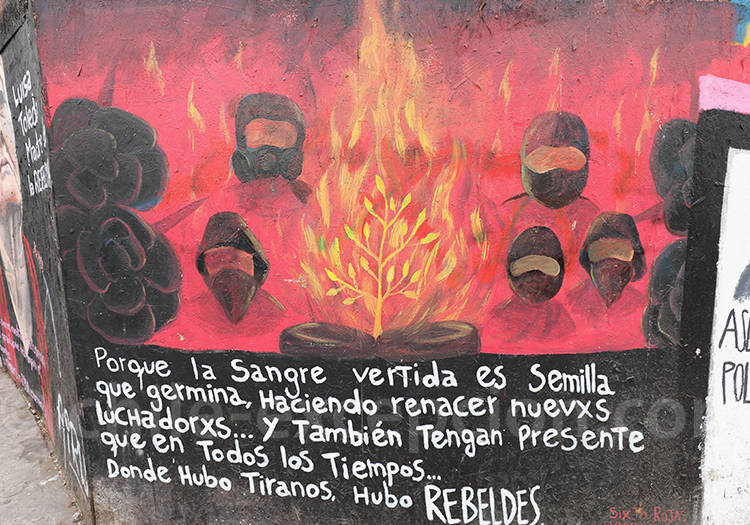 Luisa
Toledo
Madre
REBE
Porque la Sangre vertida es Semilla
que germina, Haciendo renacer nuevxs
Luchadorxs... y También Tengan Presente
que en Todos los Tiempos...
Donde Hubo Tiranos, Hubo REBELDES
SIXTO ROJAS